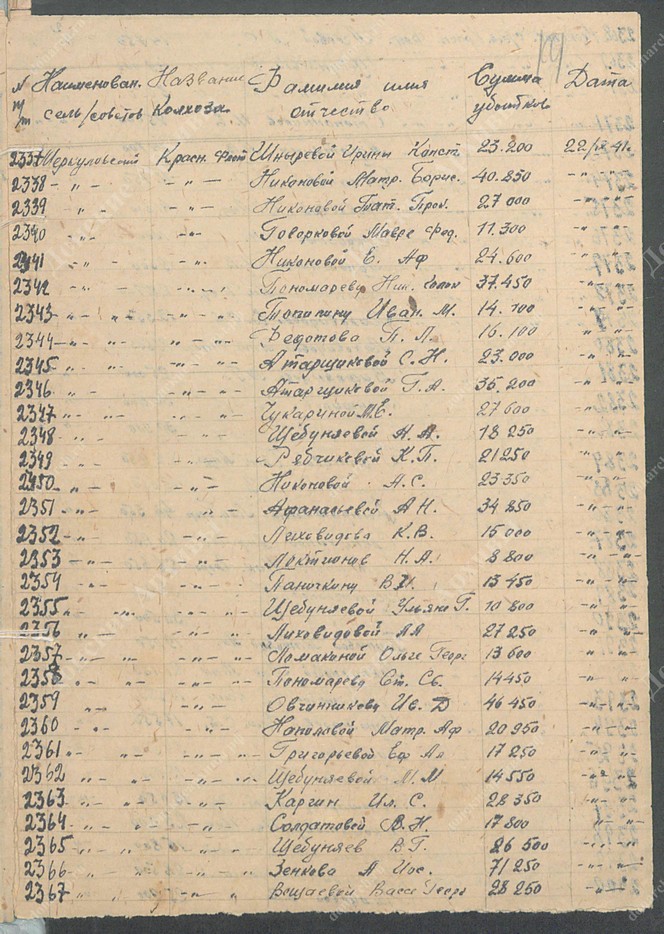 19
№ Наименован. Название Фамилия имя Сумма Дата
п/п сель/советов Колхоза отчество убытков
2337 Меркуловский Красн. Фшыревой Ирины Конст. 23.200
2338 -"- -"- Никоновой Матр. Борис. 40.850 -"-
2339 -"- -"- Никоновой Тат. Прок. 27 000 -"-
2340 -"- -"- Говорковой Мавре Фед. 11.300 -"-
2341 -"- -"- Никоновой Е. Аф 24.600 -"-
2342 -"- -"- Пономареву Ник. 37.450 -"-
2343 -"- -"- Топилину Иван. М. 14.700 -"-
2344 -"- -"- Федотова П. Л. 16.100 -"-
2345 -"- -"- Атарщиковой С. Н. 23.000 -"-
2346 -"- -"- Атарщиковой Г. А. 35.200 -"-
2347 -"- -"- Чукариной М. Е. 27 600 -"-
2348 -"- -"- Щебуняевой А. А. 18 250 -"-
2349 -"- -"- Рябчиковой К. П. 21250 -"-
2350 -"- -"- Никоновой А. С. 23350 -"-
2351 -"- -"- Афанасьевой А Н. 34 850 -"-
2352 -"- -"- Лиховидова К. В. 15 000 -"-
2353 -"- -"- Локтионов Н. А. 8 800 -"-
2354 -"- -"- Паничкину В. И. 13 450 -"-
2355 -"- -"- Щебуняевой Ульяне Г. 10 800 -"-
2356 -"- -"- Лиховидовой АА 27 250 -"-
2357 -"- -"- Ломакиной Ольге Георг 13 600 -"-
2358 -"- -"- Пономареву Ст. Св. 14450 -"-
2359 -"- -"- Овчинникову Ив. Д 46 450 -"-
2360 -"- -"- Матр. Аф 20 950 -"-
2361 -"- -"- Григорьевой Еф 17 250 -"-
2362 -"- -"- Щебуняевой М. М 14 550 -"-
2363 -"- -"- Каргин Ил. С. 28 350 -"-
2364 -"- -"- Солдатовой В. Н. 17 800 -"-
2365 -"- -"- Щебуняев В. Г. 26 500 -"-
2366 -"- -"- Зенкова А Иос. 71 250 -"-
2367 -"- -"- Вассе Георг 28 250 -"-